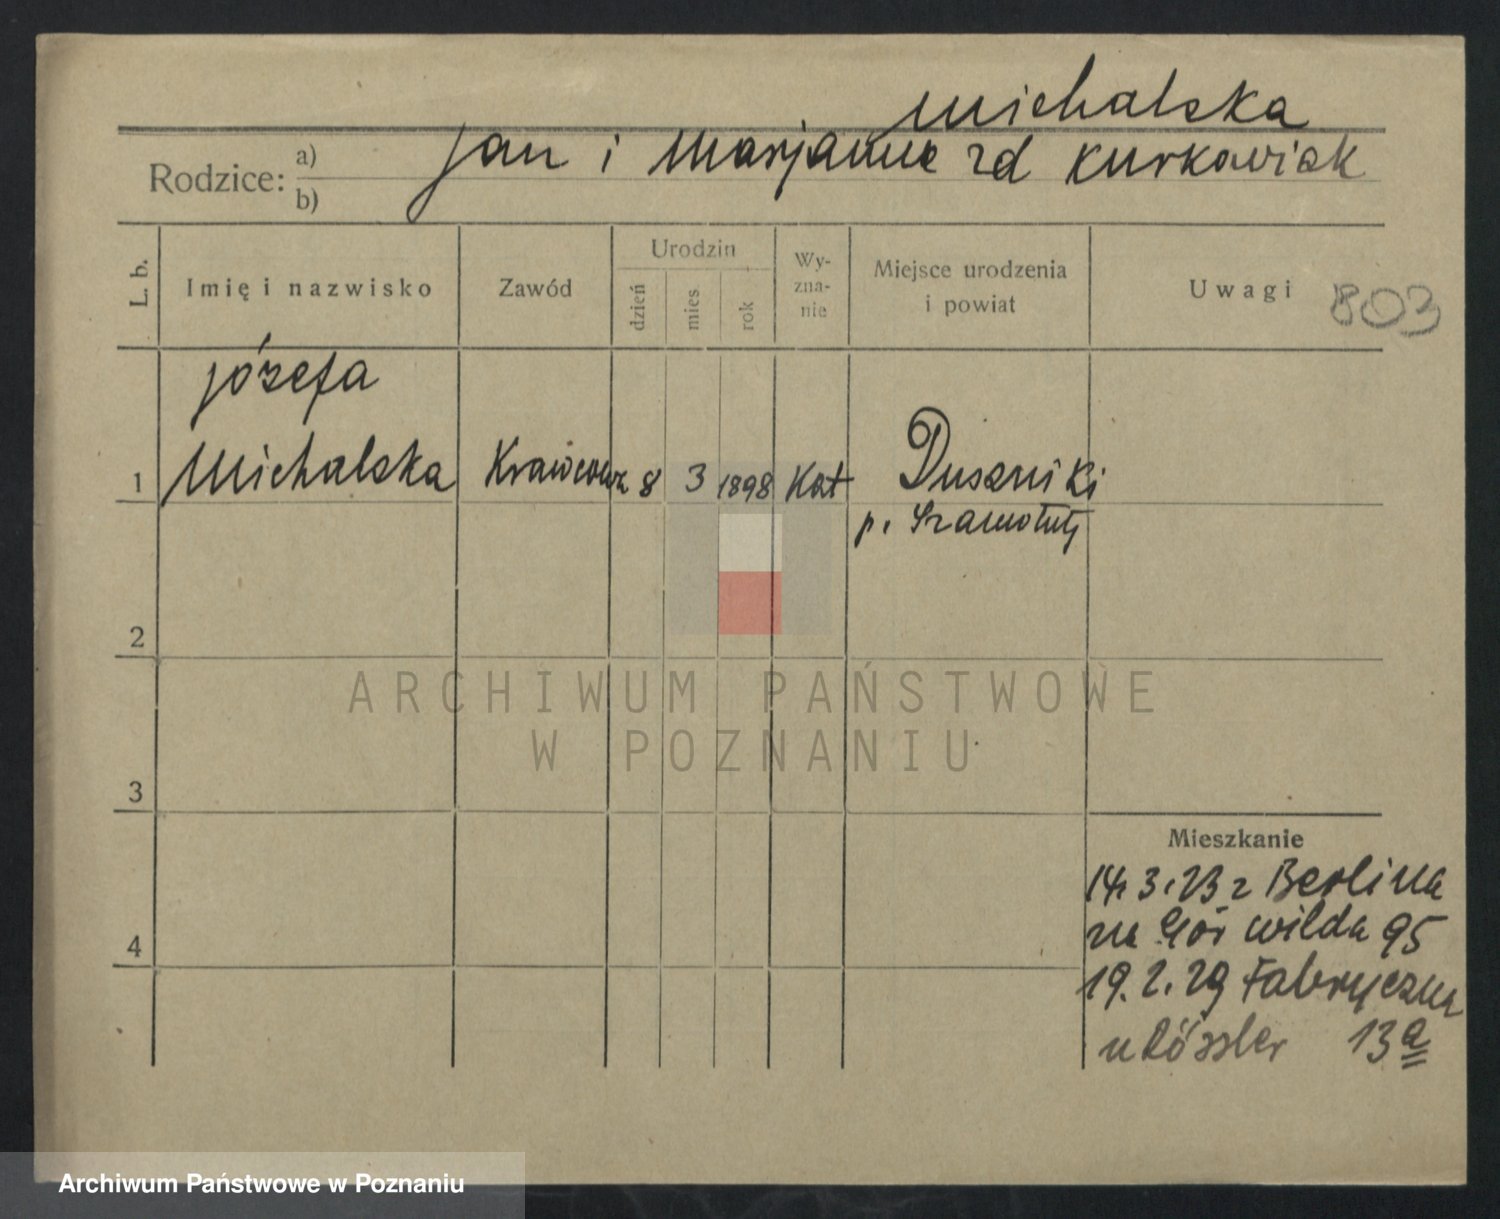 Michalska
Rodzice: a) Jan i Marjanna zd Kurkowiak
b)
L. b.
Imię i nazwisko
Zawód
Urodzin
dzień
mies.
rok
Wy-
zna-
nie
Miejsce urodzenia
i powiat
Uwagi 803
Józefa
1 Michalska Krawcowa 8 3 1898 Kat Duszniki
p. Szamotuły
2
ARCHIWUM PAŃSTWOWE
W POZNANIU
3
Mieszkanie
14. 3. 23 z Berlina
na Gór wilda 95
4
19. 2. 29 Fabryczna
u Rössler 13a
Archiwum Państwowe w Poznaniu